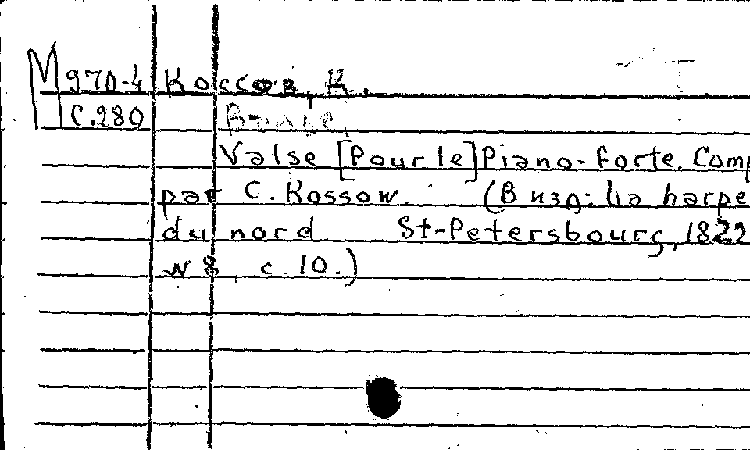 М 970-4 Коссов, К.
С.280 Вальс.
Valse [Pour le] Piano-forte. Comp
par C. Kossow. (В изд: La harpe
du nord St-Petersbourg, 1822
№ 8, с. 10.)